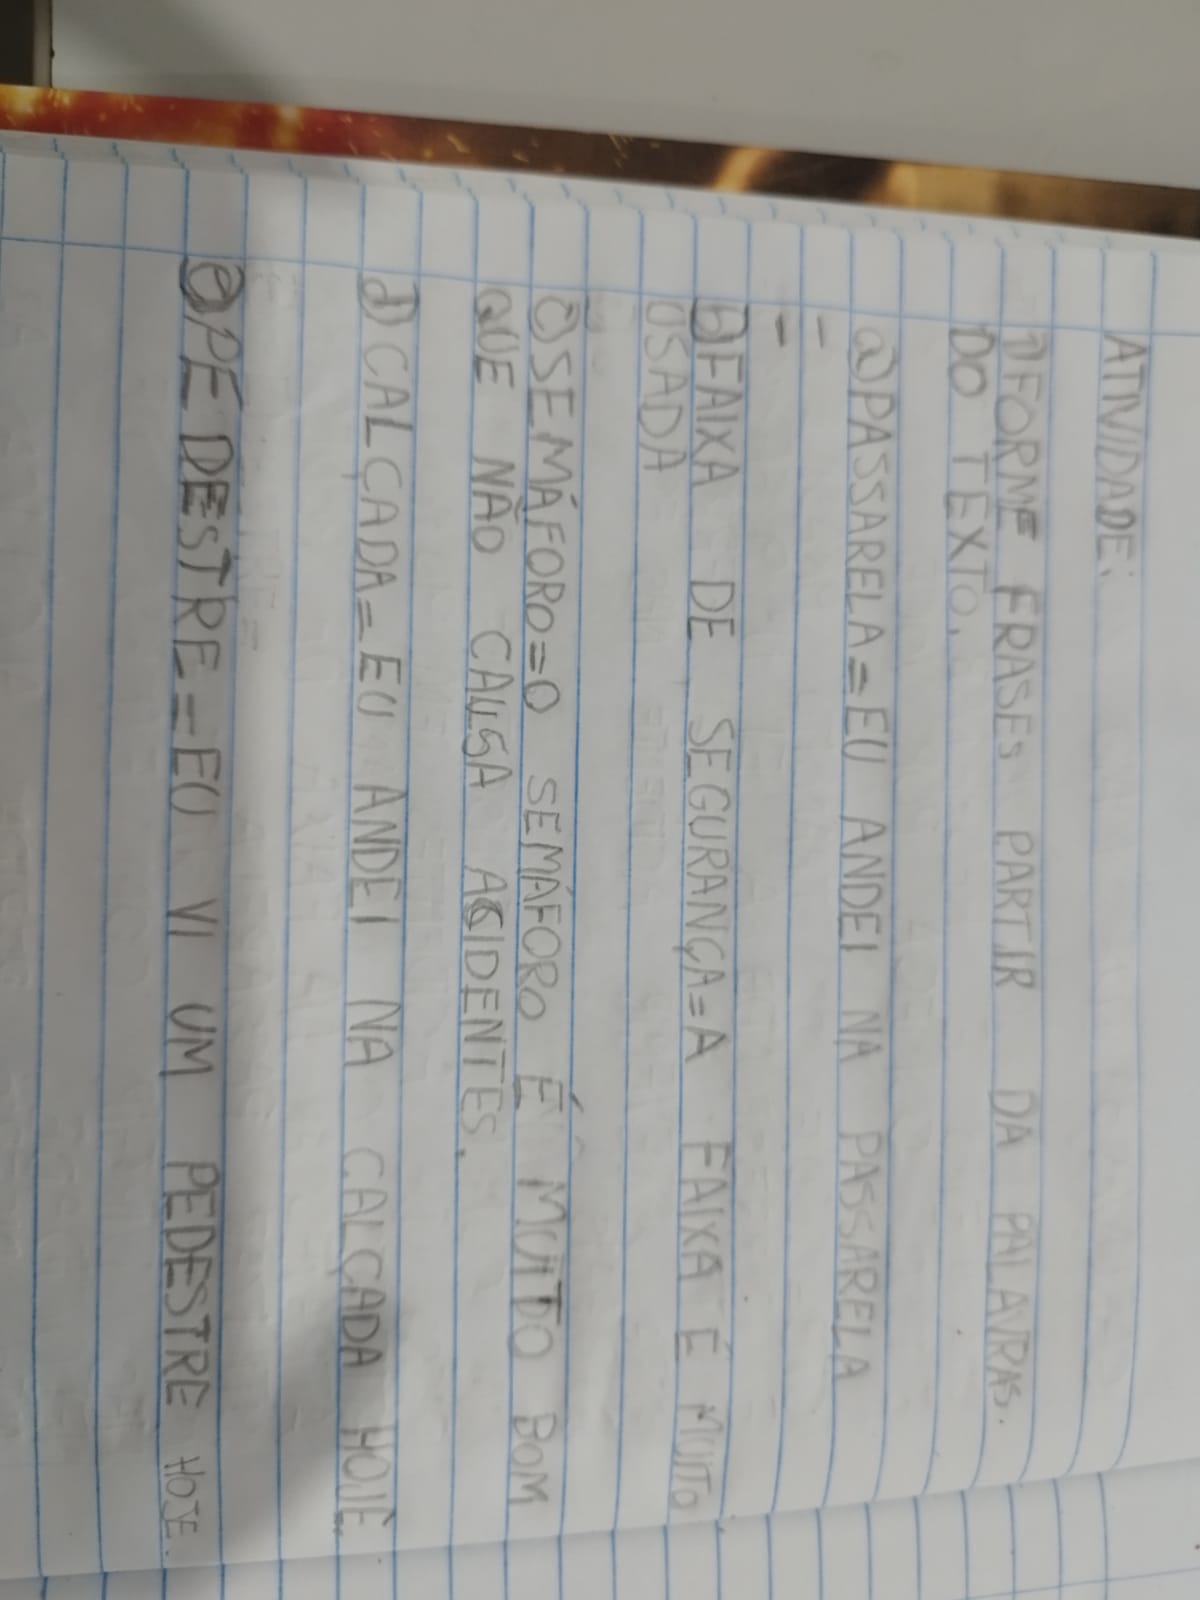 ATIVIDADE:
1) FORME FRASES PARTIR DA PALAVRAS.
DO TEXTO.
a) PASSARELA = EU ANDEI NA PASSARELA
b) FAIXA DE SEGURANÇA = A FAIXA É MUITO
USADA
c) SEMÁFORO = O SEMÁFORO É MUITO BOM
QUE NÃO CAUSA ACIDENTES.
d) CALÇADA = EU ANDEI NA CALÇADA HOJE.
e) PEDESTRE = EU VI UM PEDESTRE HOJE.